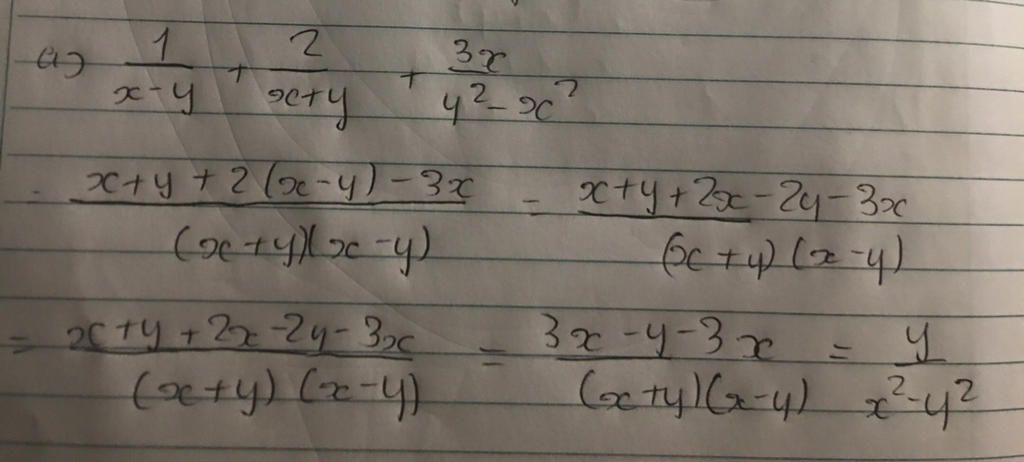 a) \frac{1}{x-y} + \frac{2}{x+y} + \frac{3x}{y^2-x^2}
= \frac{x+y+2(x-y)-3x}{(x+y)(x-y)} = \frac{x+y+2x-2y-3x}{(x+y)(x-y)}
= \frac{x+y+2x-2y-3x}{(x+y)(x-y)} = \frac{3x-y-3x}{(x+y)(x-y)} = \frac{y}{x^2-y^2}